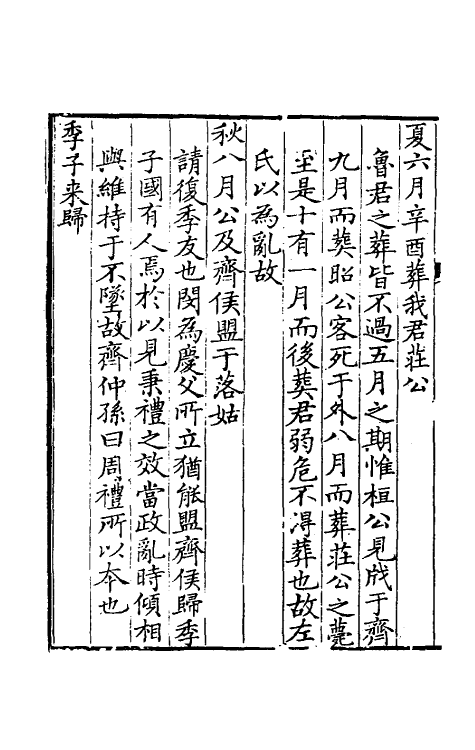 夏六月辛酉葬我君莊公
魯君之葬皆不過五月之期惟桓公見戕于齊
九月而葬昭公客死于外八月而葬莊公之薨
至是十有一月而後葬君弱危不得葬也故左
氏以為亂故
秋八月公及齊侯盟于落姑
請復季友也閔為慶父所立猶能盟齊侯歸季
子國有人焉於以見秉禮之效當政亂時傾相
與維持于不墜故齊仲孫曰周禮所以本也
季子来歸